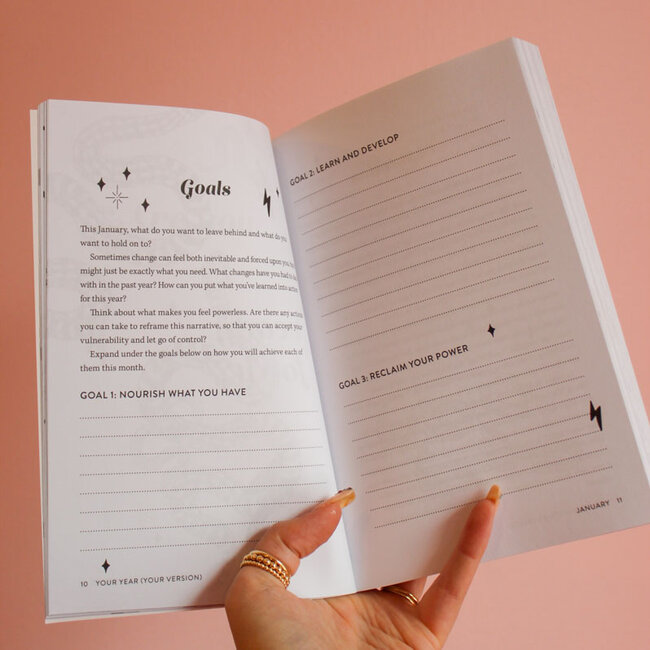 Goals
This January, what do you want to leave behind and what do you
want to hold on to?
Sometimes change can feel both inevitable and forced upon you,
might just be exactly what you need. What changes have you had to
with in the past year? How can you put what you've learned into action
for this year?
Think about what makes you feel powerless. Are there any actions
you can take to reframe this narrative, so that you can accept your
vulnerability and let go of control?
Expand under the goals below on how you will achieve each of
them this month.
GOAL 1: NOURISH WHAT YOU HAVE
10 YOUR YEAR (YOUR VERSION)
GOAL 2: LEARN AND DEVELOP
GOAL 3: RECLAIM YOUR POWER
JANUARY 11